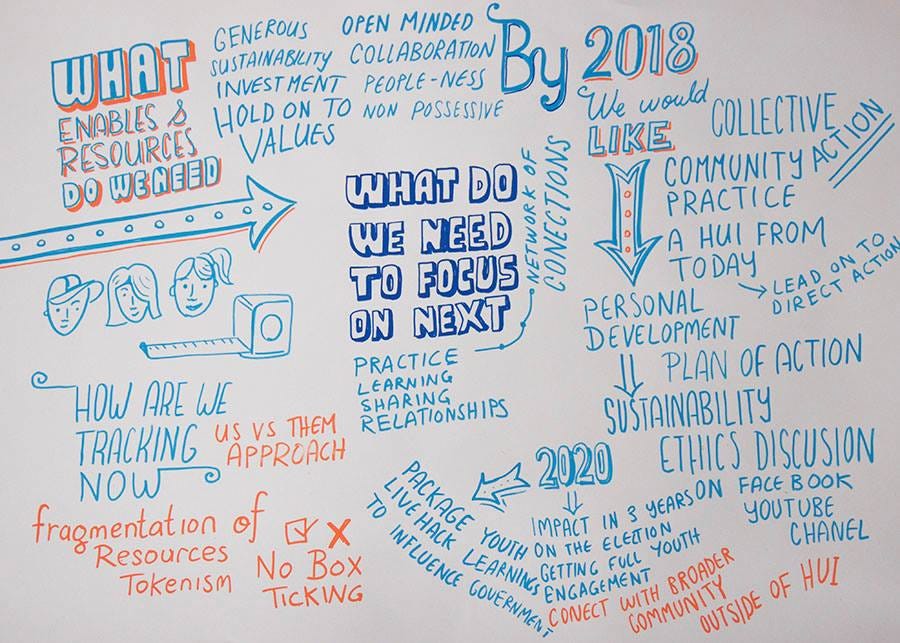 WHAT
ENABLES &
RESOURCES
DO WE NEED
GENEROUS
SUSTAINABILITY
INVESTMENT
HOLD ON TO
VALUES
OPEN MINDED
COLLABORATION
PEOPLE-NESS
NON POSSESSIVE
By 2018
We would
LIKE
COLLECTIVE
ACTION
COMMUNITY
PRACTICE
A HUI FROM
TODAY
LEAD ON TO
DIRECT ACTION
PERSONAL
DEVELOPMENT
PLAN OF ACTION
SUSTAINABILITY
ETHICS DISCUSION
ON FACEBOOK
YOUTUBE
CHANEL
WHAT DO
WE NEED
TO FOCUS
ON NEXT
NETWORK OF
CONECTIONS
PRACTICE
LEARNING
SHARING
RELATIONSHIPS
HOW ARE WE
TRACKING
NOW
US VS THEM
APPROACH
fragmentation of
Resources
Tokenism
No Box
Ticking
2020
IMPACT IN 3 YEARS
ON THE ELETION
GETTING FULL YOUTH
ENGAGEMENT
CONECT WITH BROADER
COMMUNITY
OUTSIDE OF HUI
PACKAGE YOUTH
LIVEHACK LEARNINGS
TO INFLUENCE GOVERNMENT